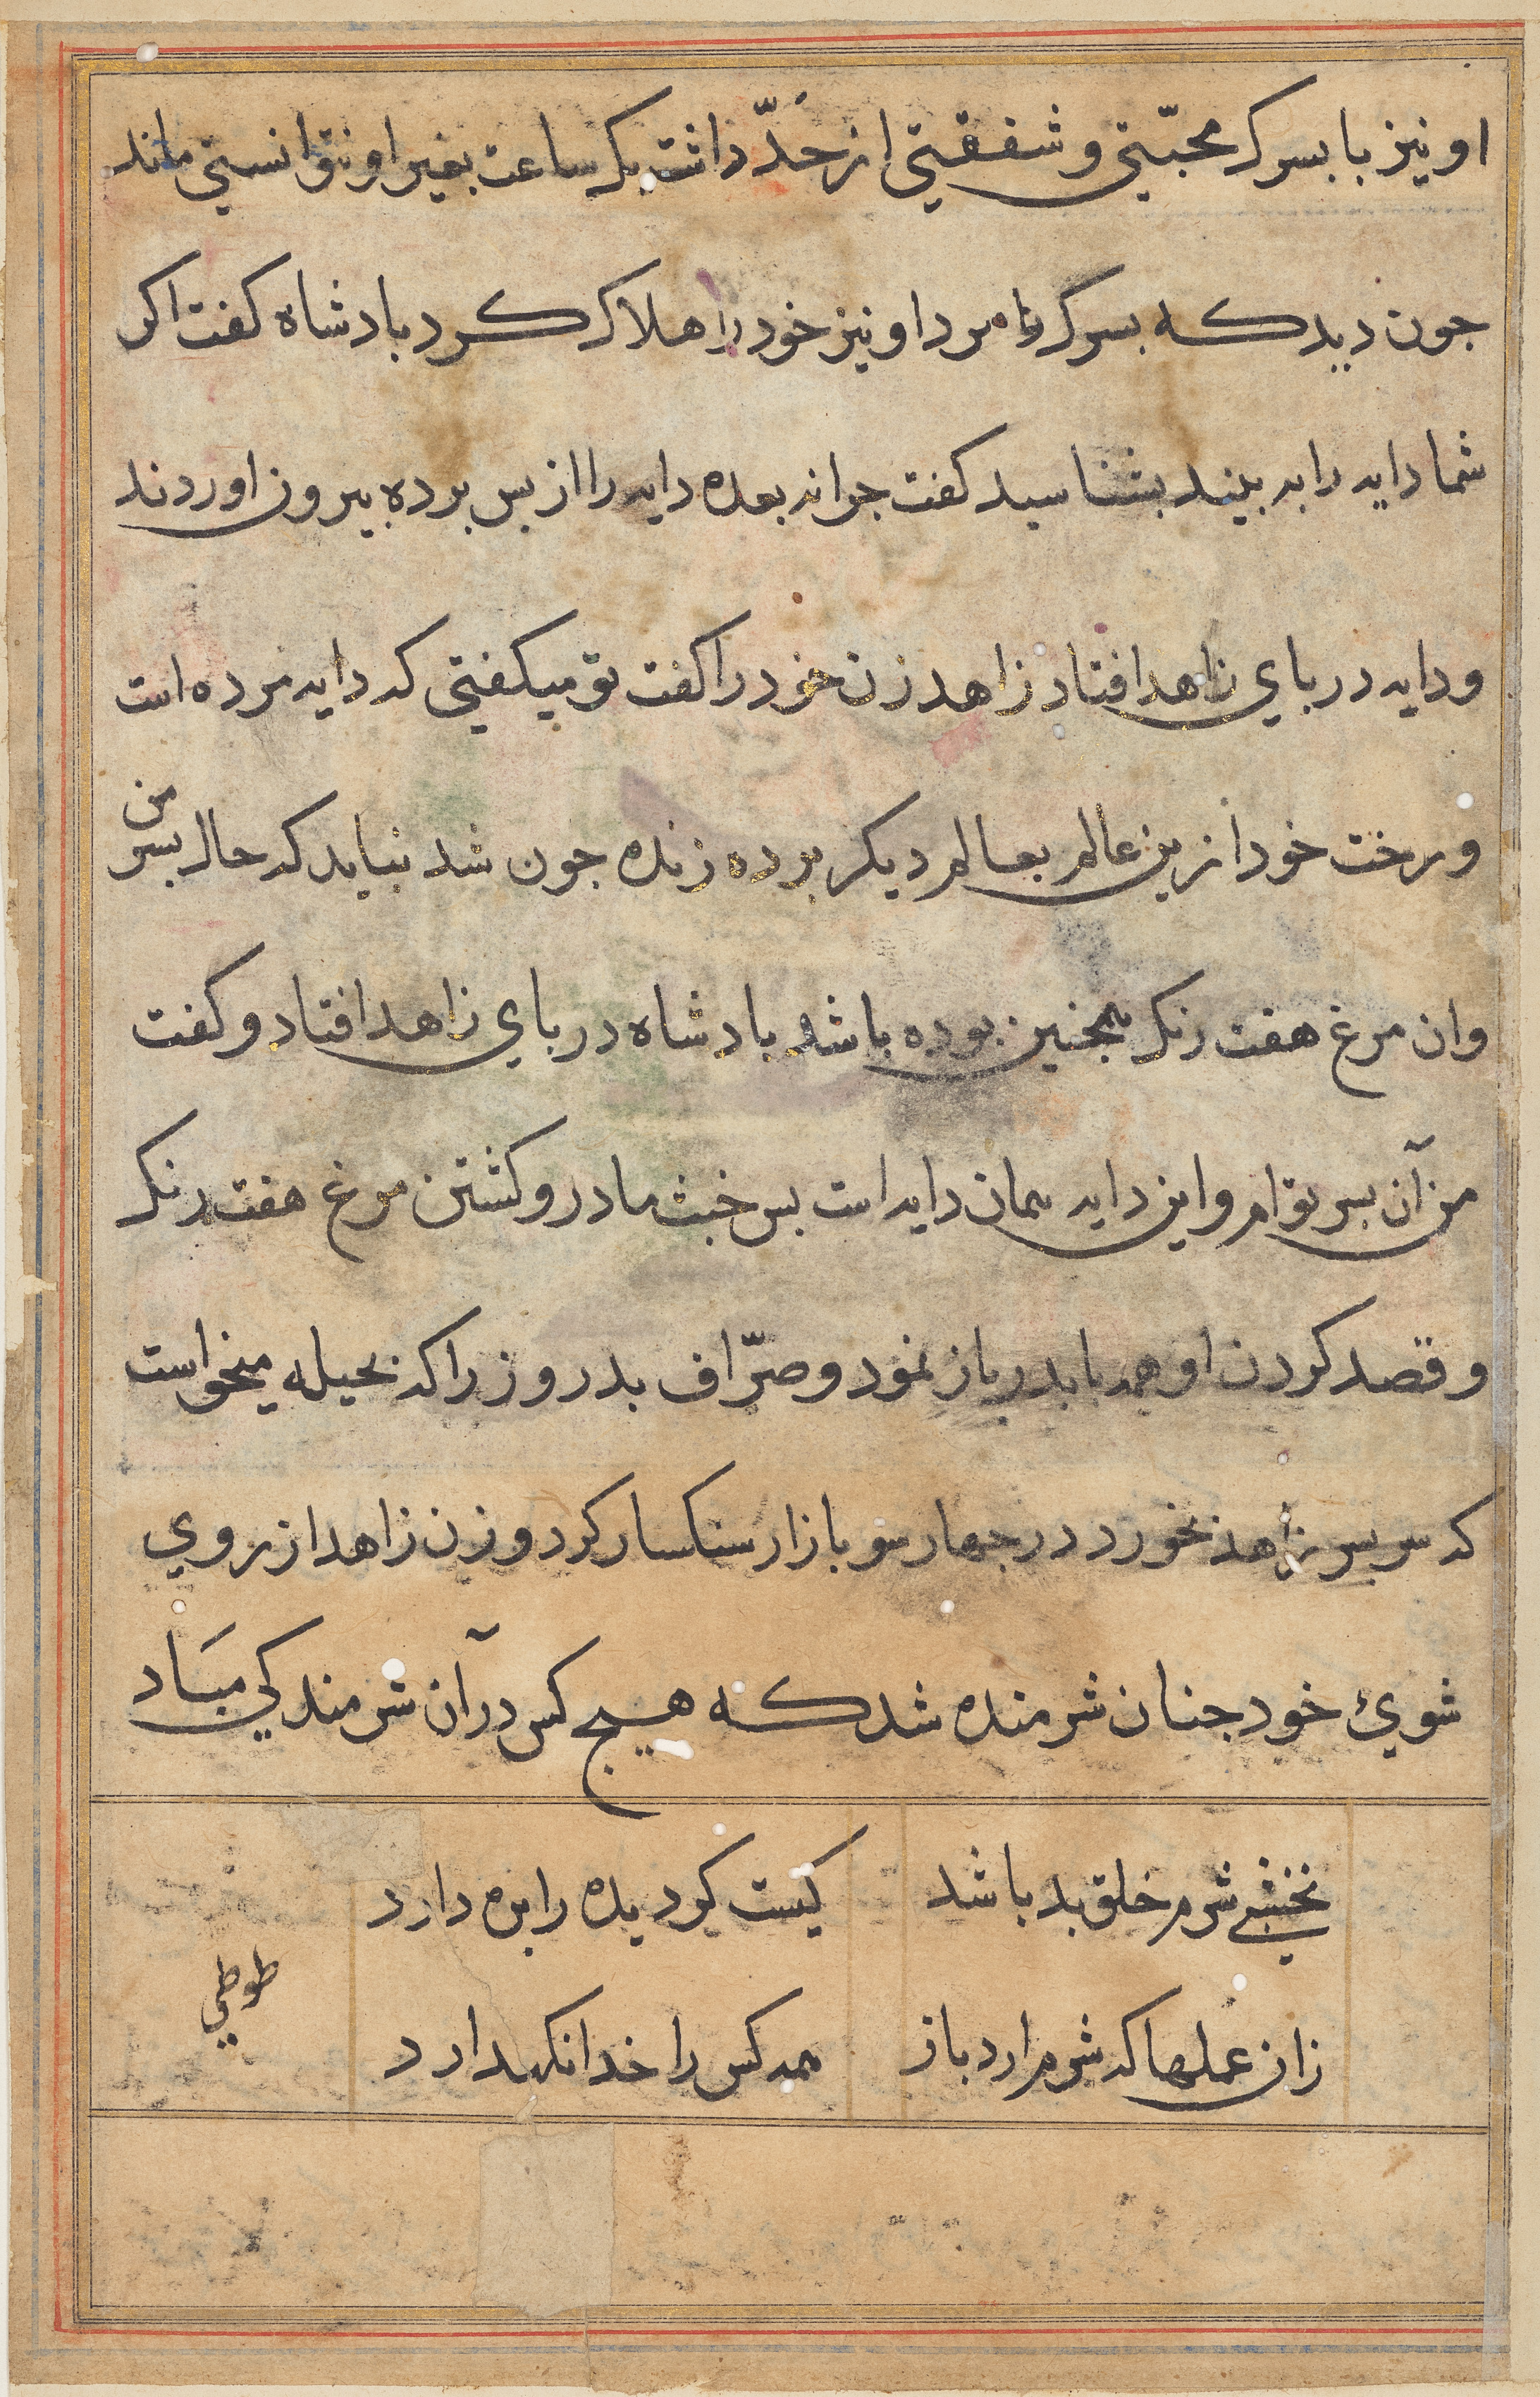 او نیز با بسرک محبّتی و شفقتی از حَدّ داشت یک ساعت بغیر او نتوانستی ماند
جون دید که بسرک را مرد او نیز خود را هلاک کرد بادشاه کفت اکر
شما دایه را به بینید بشناسید کفت جرا نه بعده دایه را از بس برده بیرون اوردند
و دایه در بای زاهد افتاد زاهد زن خود را کفت تو میکفتی که دایه مرده است
و رخت خود ازین عالم بعالم دیکر برده زنده جون شد نباید که حال بسر من
وان مرغ هفت رنک همجنین بوده باشد بادشاه در بای زاهد افتاد و کفت
من آن بسر توام و این دایه همان دایه است بس خبث مادر و کشتن مرغ هفت رنک
و قصد کردن او همه با بدر باز نمود و صرّاف بدروز را که بحیله میخواست
که سر بسر زاهد بخورد در جهار سو بازار سنکسار کرد و زن زاهد از روی
شوئ خود جنان شرمنده شد که هیج کس در آن شرمندکی مبَاد
نخشبی شرم خلق بد باشد کیست کو دیده را بره دارد
زان عملها که شرم ارد باز همه کس را خدا نکهدارد
طوطی